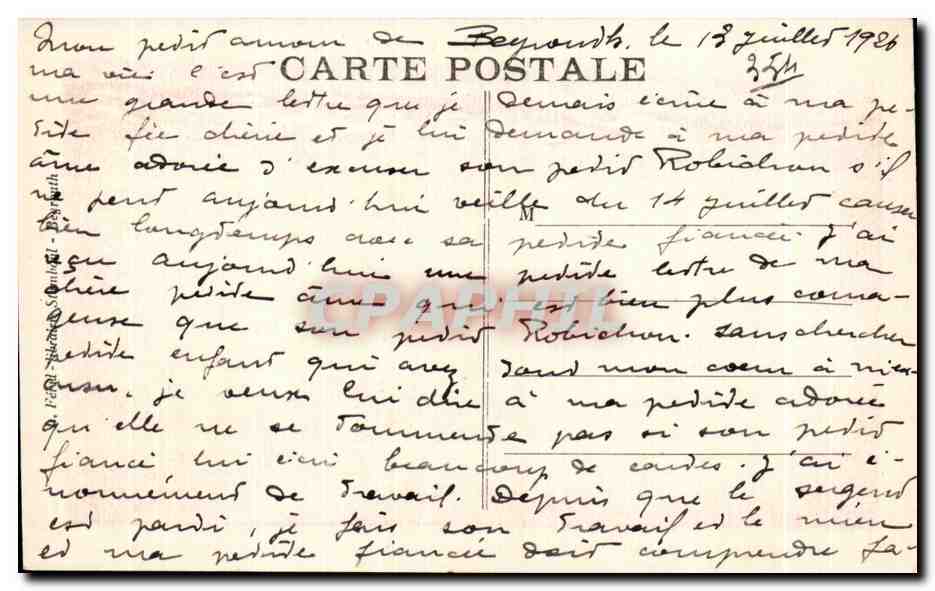 mon petit amour de Beyrouth. le 13 juillet 1926
ma vie c'est
CARTE POSTALE
354
une grande lettre que je demais écrire à ma pe-
tite fée chérie et je lui demande à ma petite
âme adorée d'excuser son petit Robichon s'il
ne peut aujourd'hui veille du 14 juillet causer
M
bien longtemps avec sa petite fiancée. J'ai
reçu aujourd'hui une petite lettre de ma
chère petite âme qui est bien plus coura-
geuse que son petit Robichon. sans chercher
petite enfant qui avez tout mon coeur à
je veux lui dire à ma petite adorée
qu'elle ne se tourmente pas si son petit
fiancé lui écrit beaucoup de cartes. J'ai é-
normément de travail. Depuis que le sergent
est parti, je fais son travail et le mien
et ma petite fiancée doit comprendre fa-
CPAPHIL